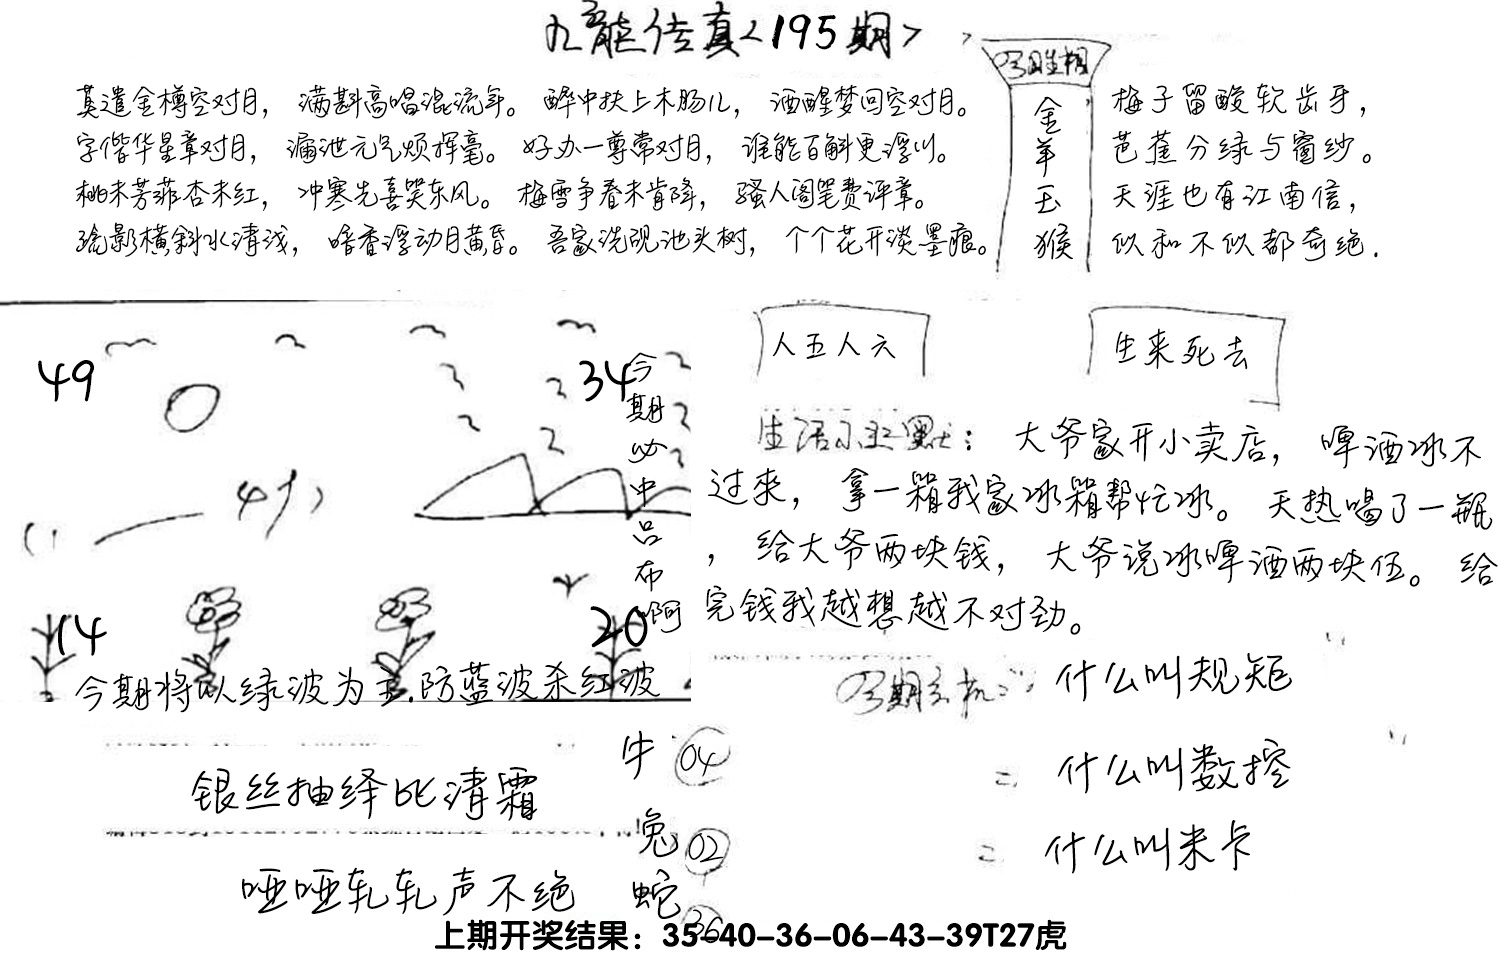 九龍传真<195期>
莫遣金樽空对月, 满斟高唱混流年。 醉中扶上木肠儿, 酒醒梦回空对月。
字偕华星章对月, 漏泄元气烦挥毫。 好办一尊常对月, 谁能百斛更浮川。
桃未芳菲杏未红, 冲寒先喜笑东风。 梅雪争春未肯降, 骚人阁笔费评章。
疏影横斜水清浅, 暗香浮动月黄昏。 吾家洗砚池头树, 个个花开淡墨痕。
金羊玉猴
梅子留酸软齿牙,
芭蕉分绿与窗纱。
天涯也有江南信,
似和不似都奇绝.
49
34
14
20
今期必中吕布啊
今期将以绿波为主.防蓝波杀红波
人五人六
生来死去
大爷家开小卖店, 啤酒冰不
过来, 拿一箱我家冰箱帮忙冰。 天热喝了一瓶
, 给大爷两块钱, 大爷说冰啤酒两块伍。 给
完钱我越想越不对劲。
什么叫规矩
= 什么叫数控
= 什么叫米卡
银丝抽绎比清霜
哑哑轧轧声不绝
牛 04
兔 02
蛇 36
上期开奖结果：35-40-36-06-43-39T27虎